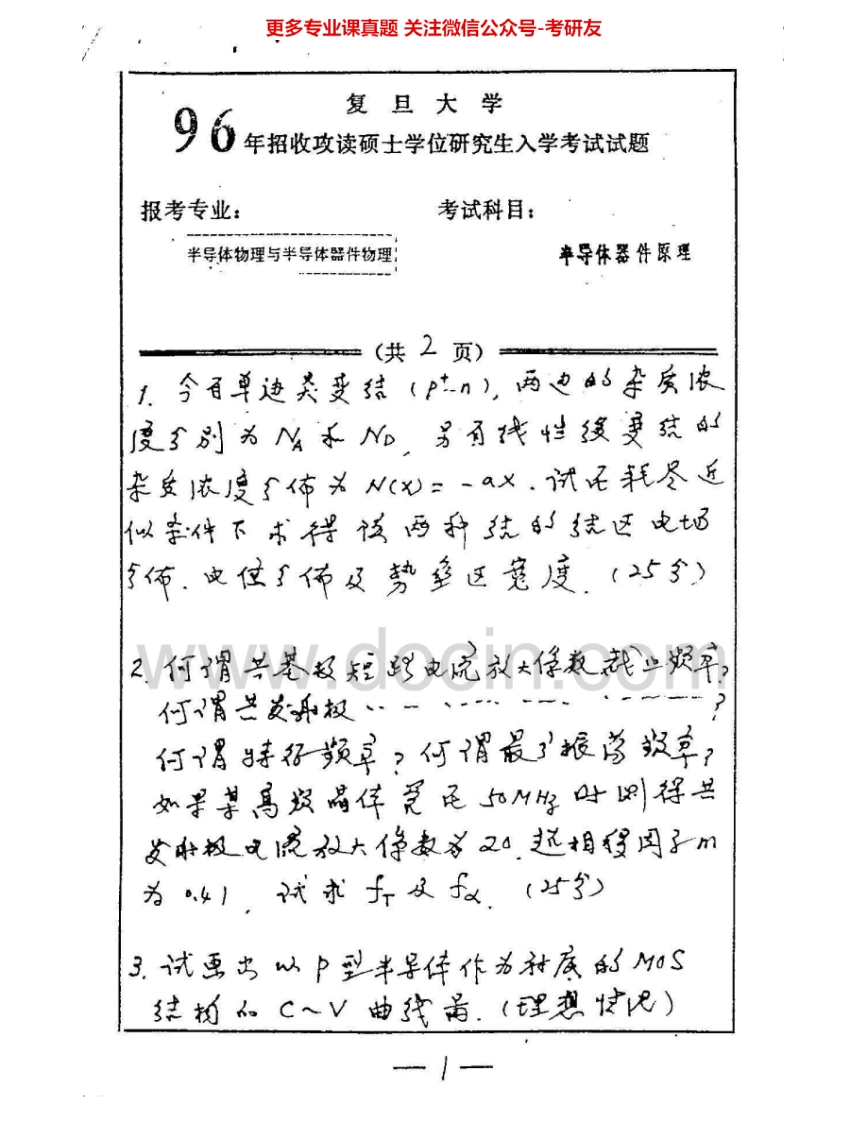 更多专业课真题 关注微信公众号-考研友
复旦大学
96年招收攻读硕士学位研究生入学考试试题
报考专业: 考试科目:
半导体物理与半导体器件物理 半导体器件原理
(共 2 页)
1. 今有单边突变结 (p⁺-n), 两边的杂质浓
度分别为 NA 和 ND, 另有线性缓变结的
杂质浓度分佈为 N(x) = -ax. 试在耗尽近
似条件下求得该两种结的结区电场
分佈、电位分佈及势垒区宽度. (25分)
www.docin.com
2. 何谓共基极短路电流放大係数截止频率?
何谓共发射极 ---- ?
何谓特征频率? 何谓最高振荡频率?
如果某高频晶体管在 50MHz 时测得共
发射极电流放大係数为 20, 超相移因子 m
为 0.41, 试求 fT 及 fα. (25分)
3. 试画出以 P 型半导体作为衬底的 MOS
结构的 C~V 曲线图. (理想情况)
— 1 —